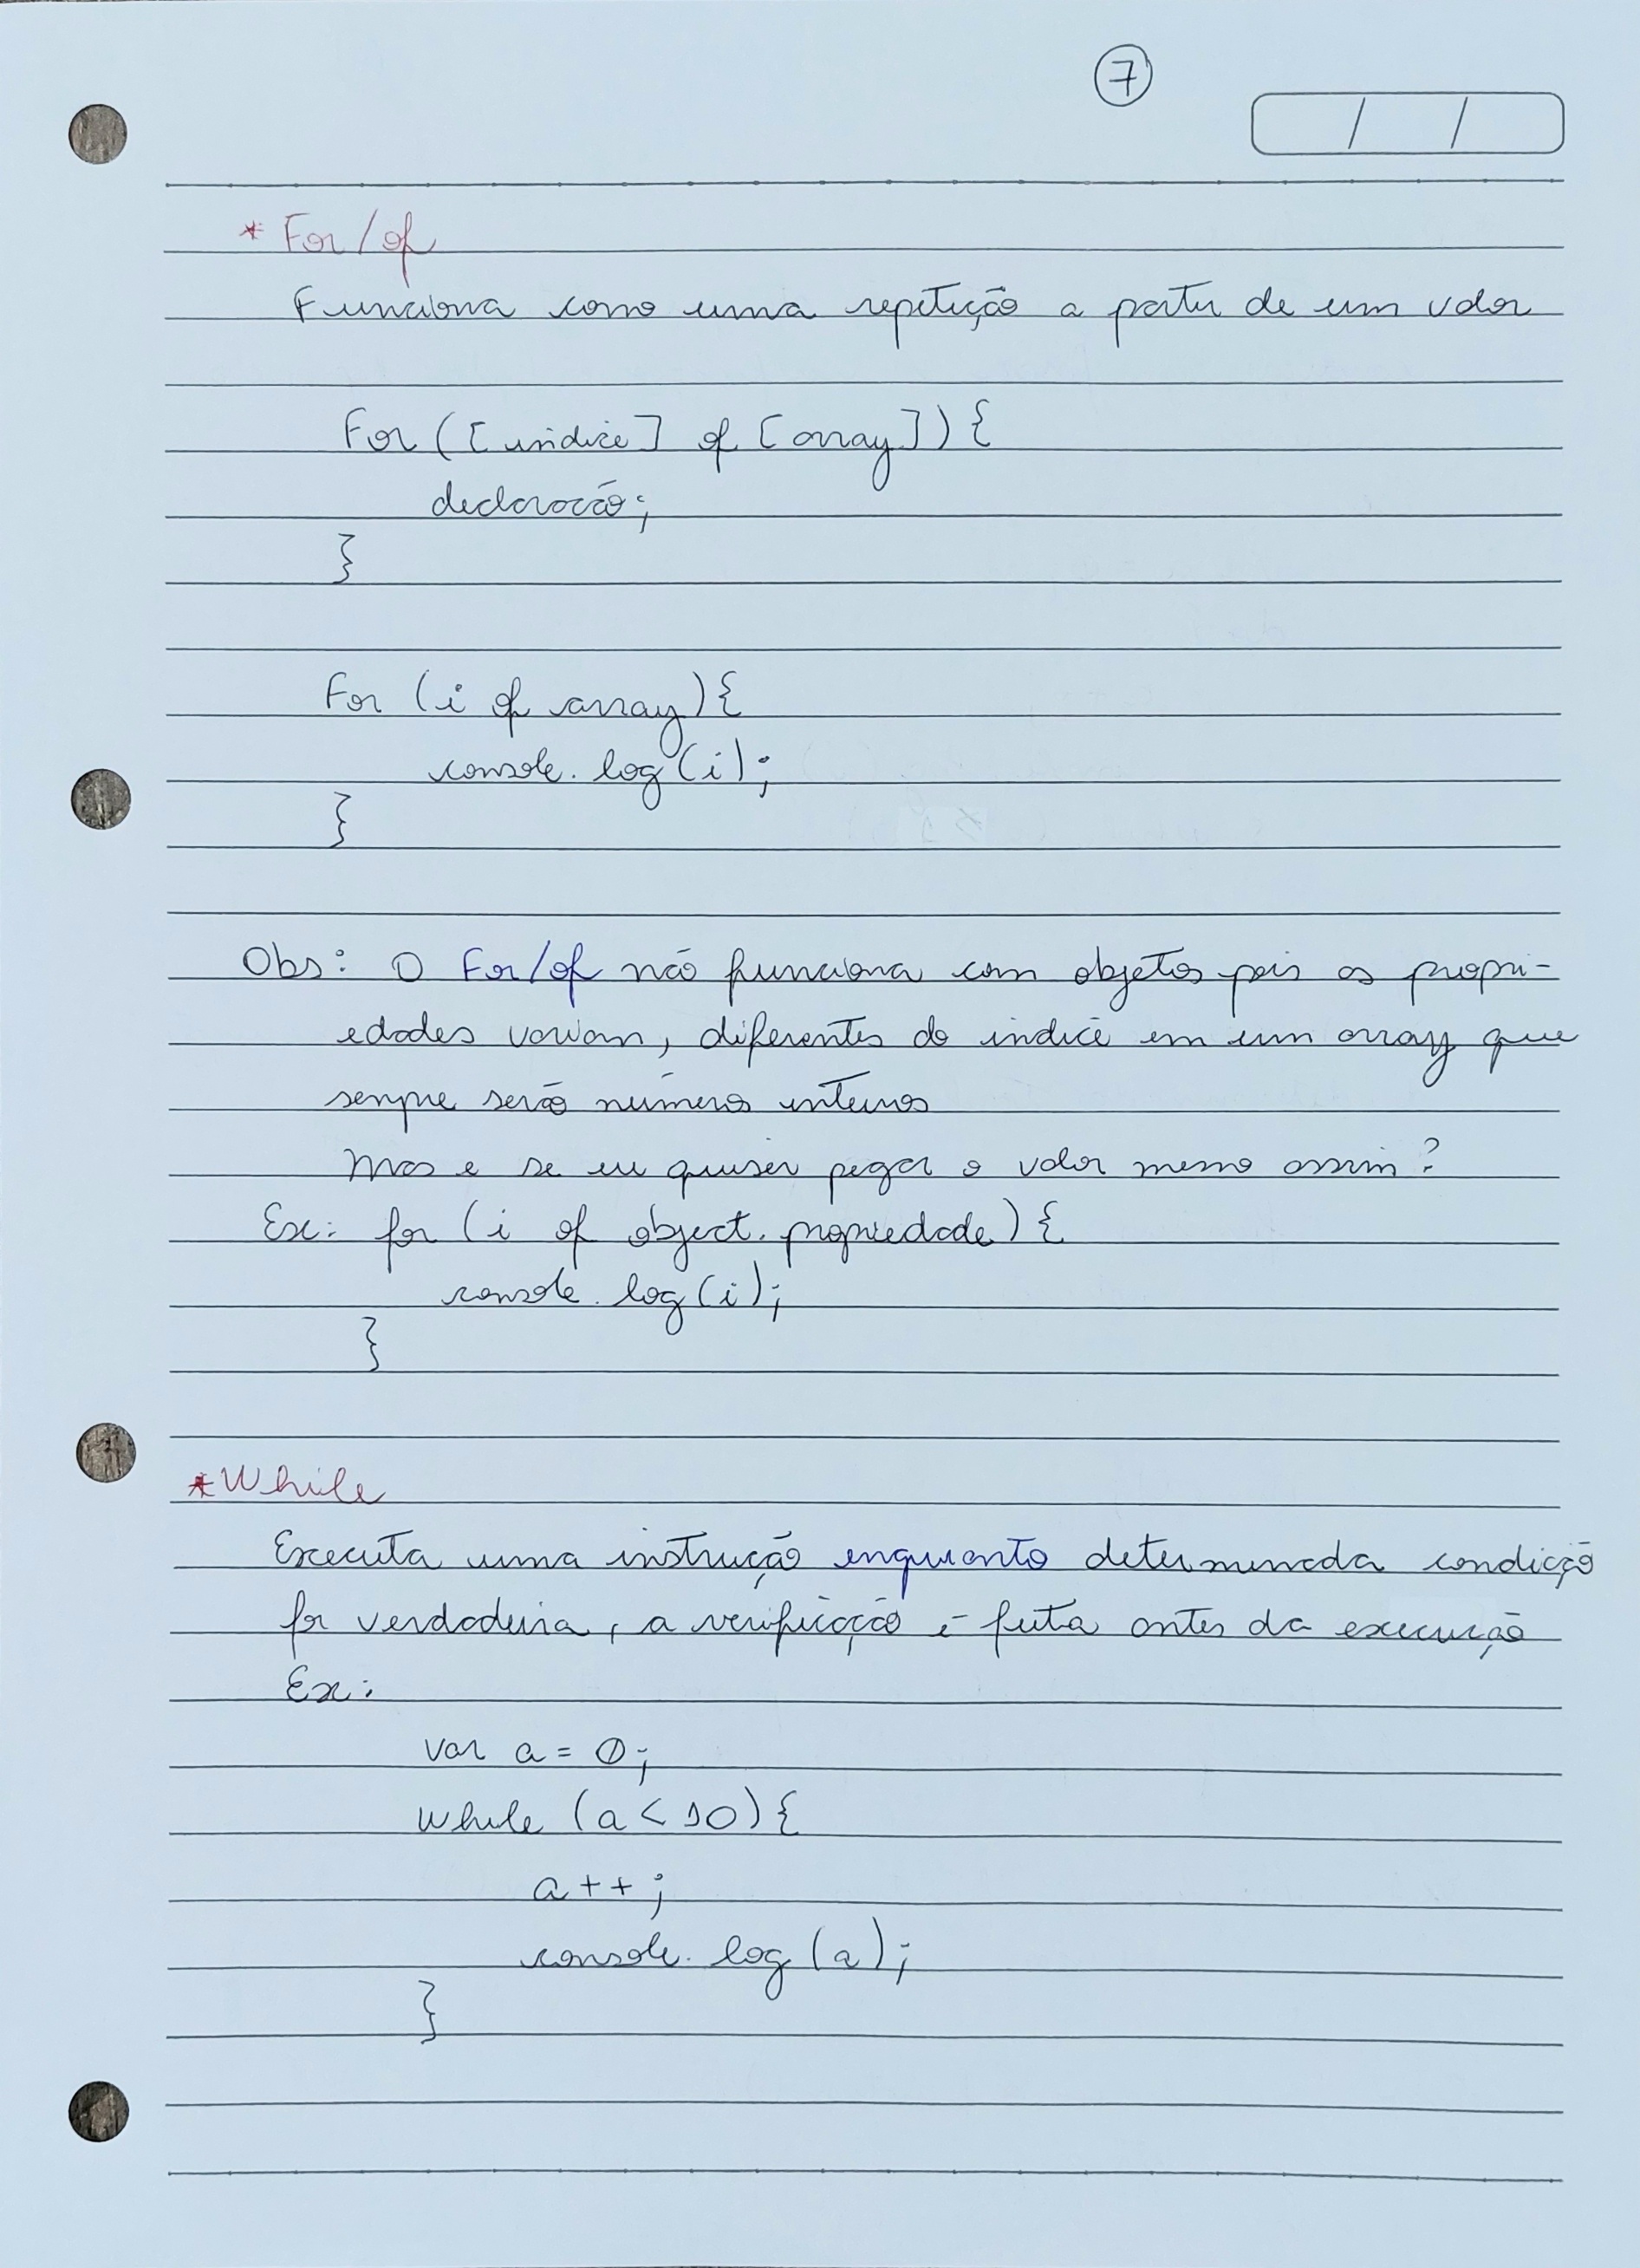 7
/ /
* For/of
Funciona como uma repetição a partir de um valor
For ([indice] of [array]) {
declaração;
}
For (i of array) {
console.log(i);
}
Obs: O For/of não funciona com objetos pois as propri-
edades variam, diferentes do indice em um array que
sempre serão números inteiros
Mas e se eu quiser pegar o valor mesmo assim?
Ex: for (i of object.propriedade) {
console.log(i);
}
*While
Executa uma instrução enquanto determinada condição
for verdadeira, a verificação é feita antes da execução
Ex:
var a = 0;
while (a < 10) {
a++;
console.log(a);
}